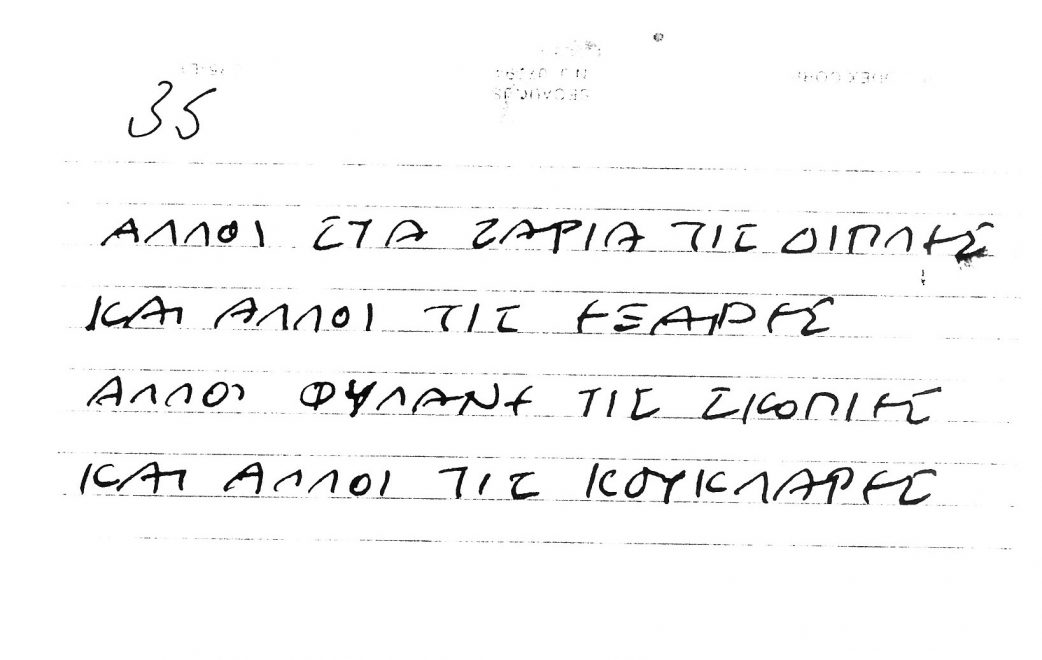 35
ΑΛΛΟΙ ΣΤΑ ΖΑΡΙΑ ΤΙΣ ΔΙΠΛΕΣ
ΚΑΙ ΑΛΛΟΙ ΤΙΣ ΕΞΑΡΕΣ
ΑΛΛΟΙ ΦΥΛΑΝΕ ΤΙΣ ΣΚΟΠΙΕΣ
ΚΑΙ ΑΛΛΟΙ ΤΙΣ ΚΟΥΚΛΑΡΕΣ